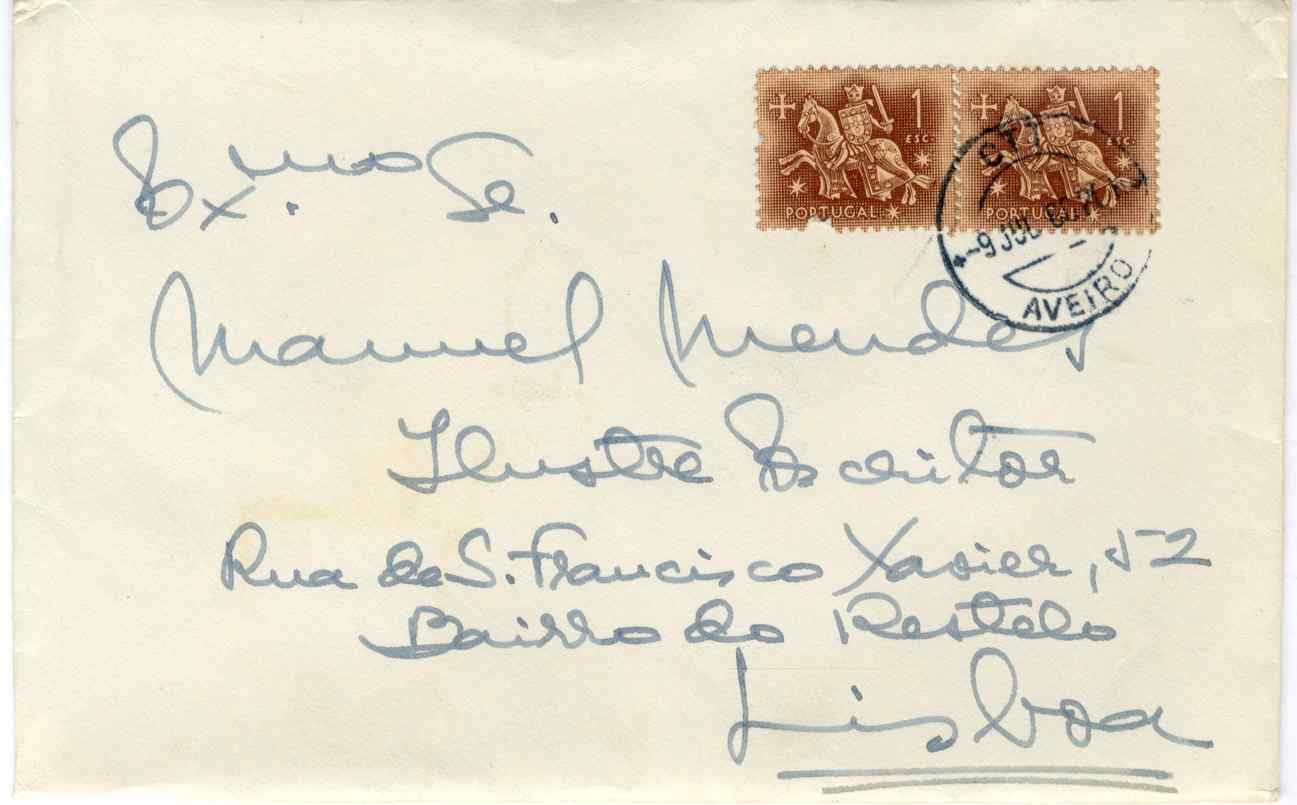 1 ESC. 1 ESC.
PORTUGAL PORTUGAL
CTT
-9 JUL
AVEIRO
Ex.mo Sr.
Manuel Mendes
Ilustre Escritor
Rua de S. Francisco Xavier, 52
Bairro do Restelo
Lisboa